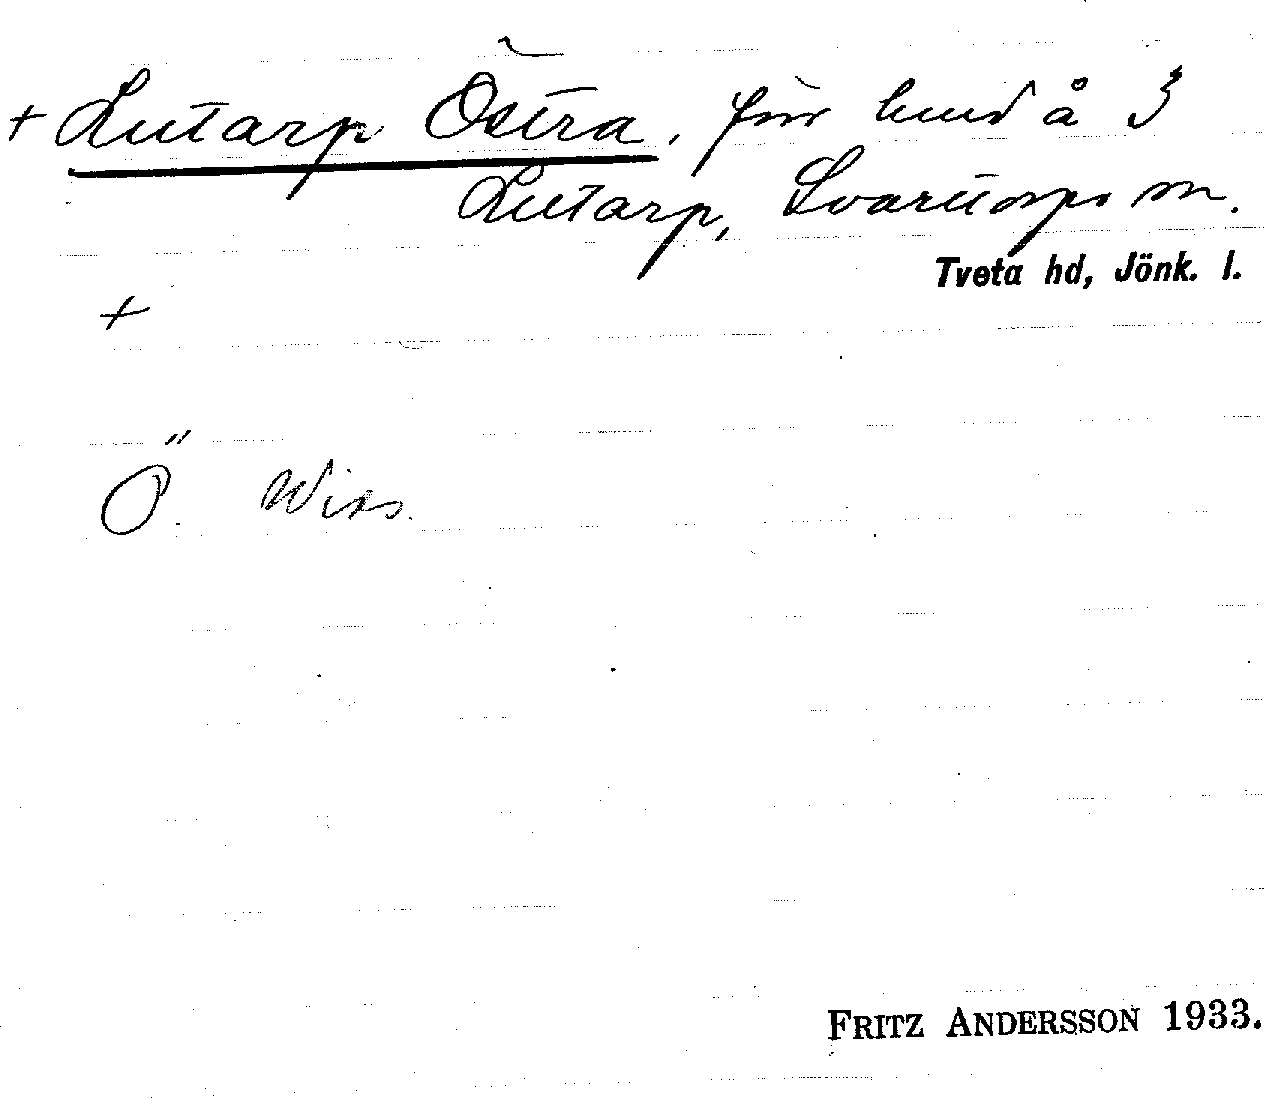 + Lutarp Östra, förr lund å 3
Lutarp, Svarttorps sn.
Tveta hd, Jönk. l.
+
Ö.
FRITZ ANDERSSON 1933.